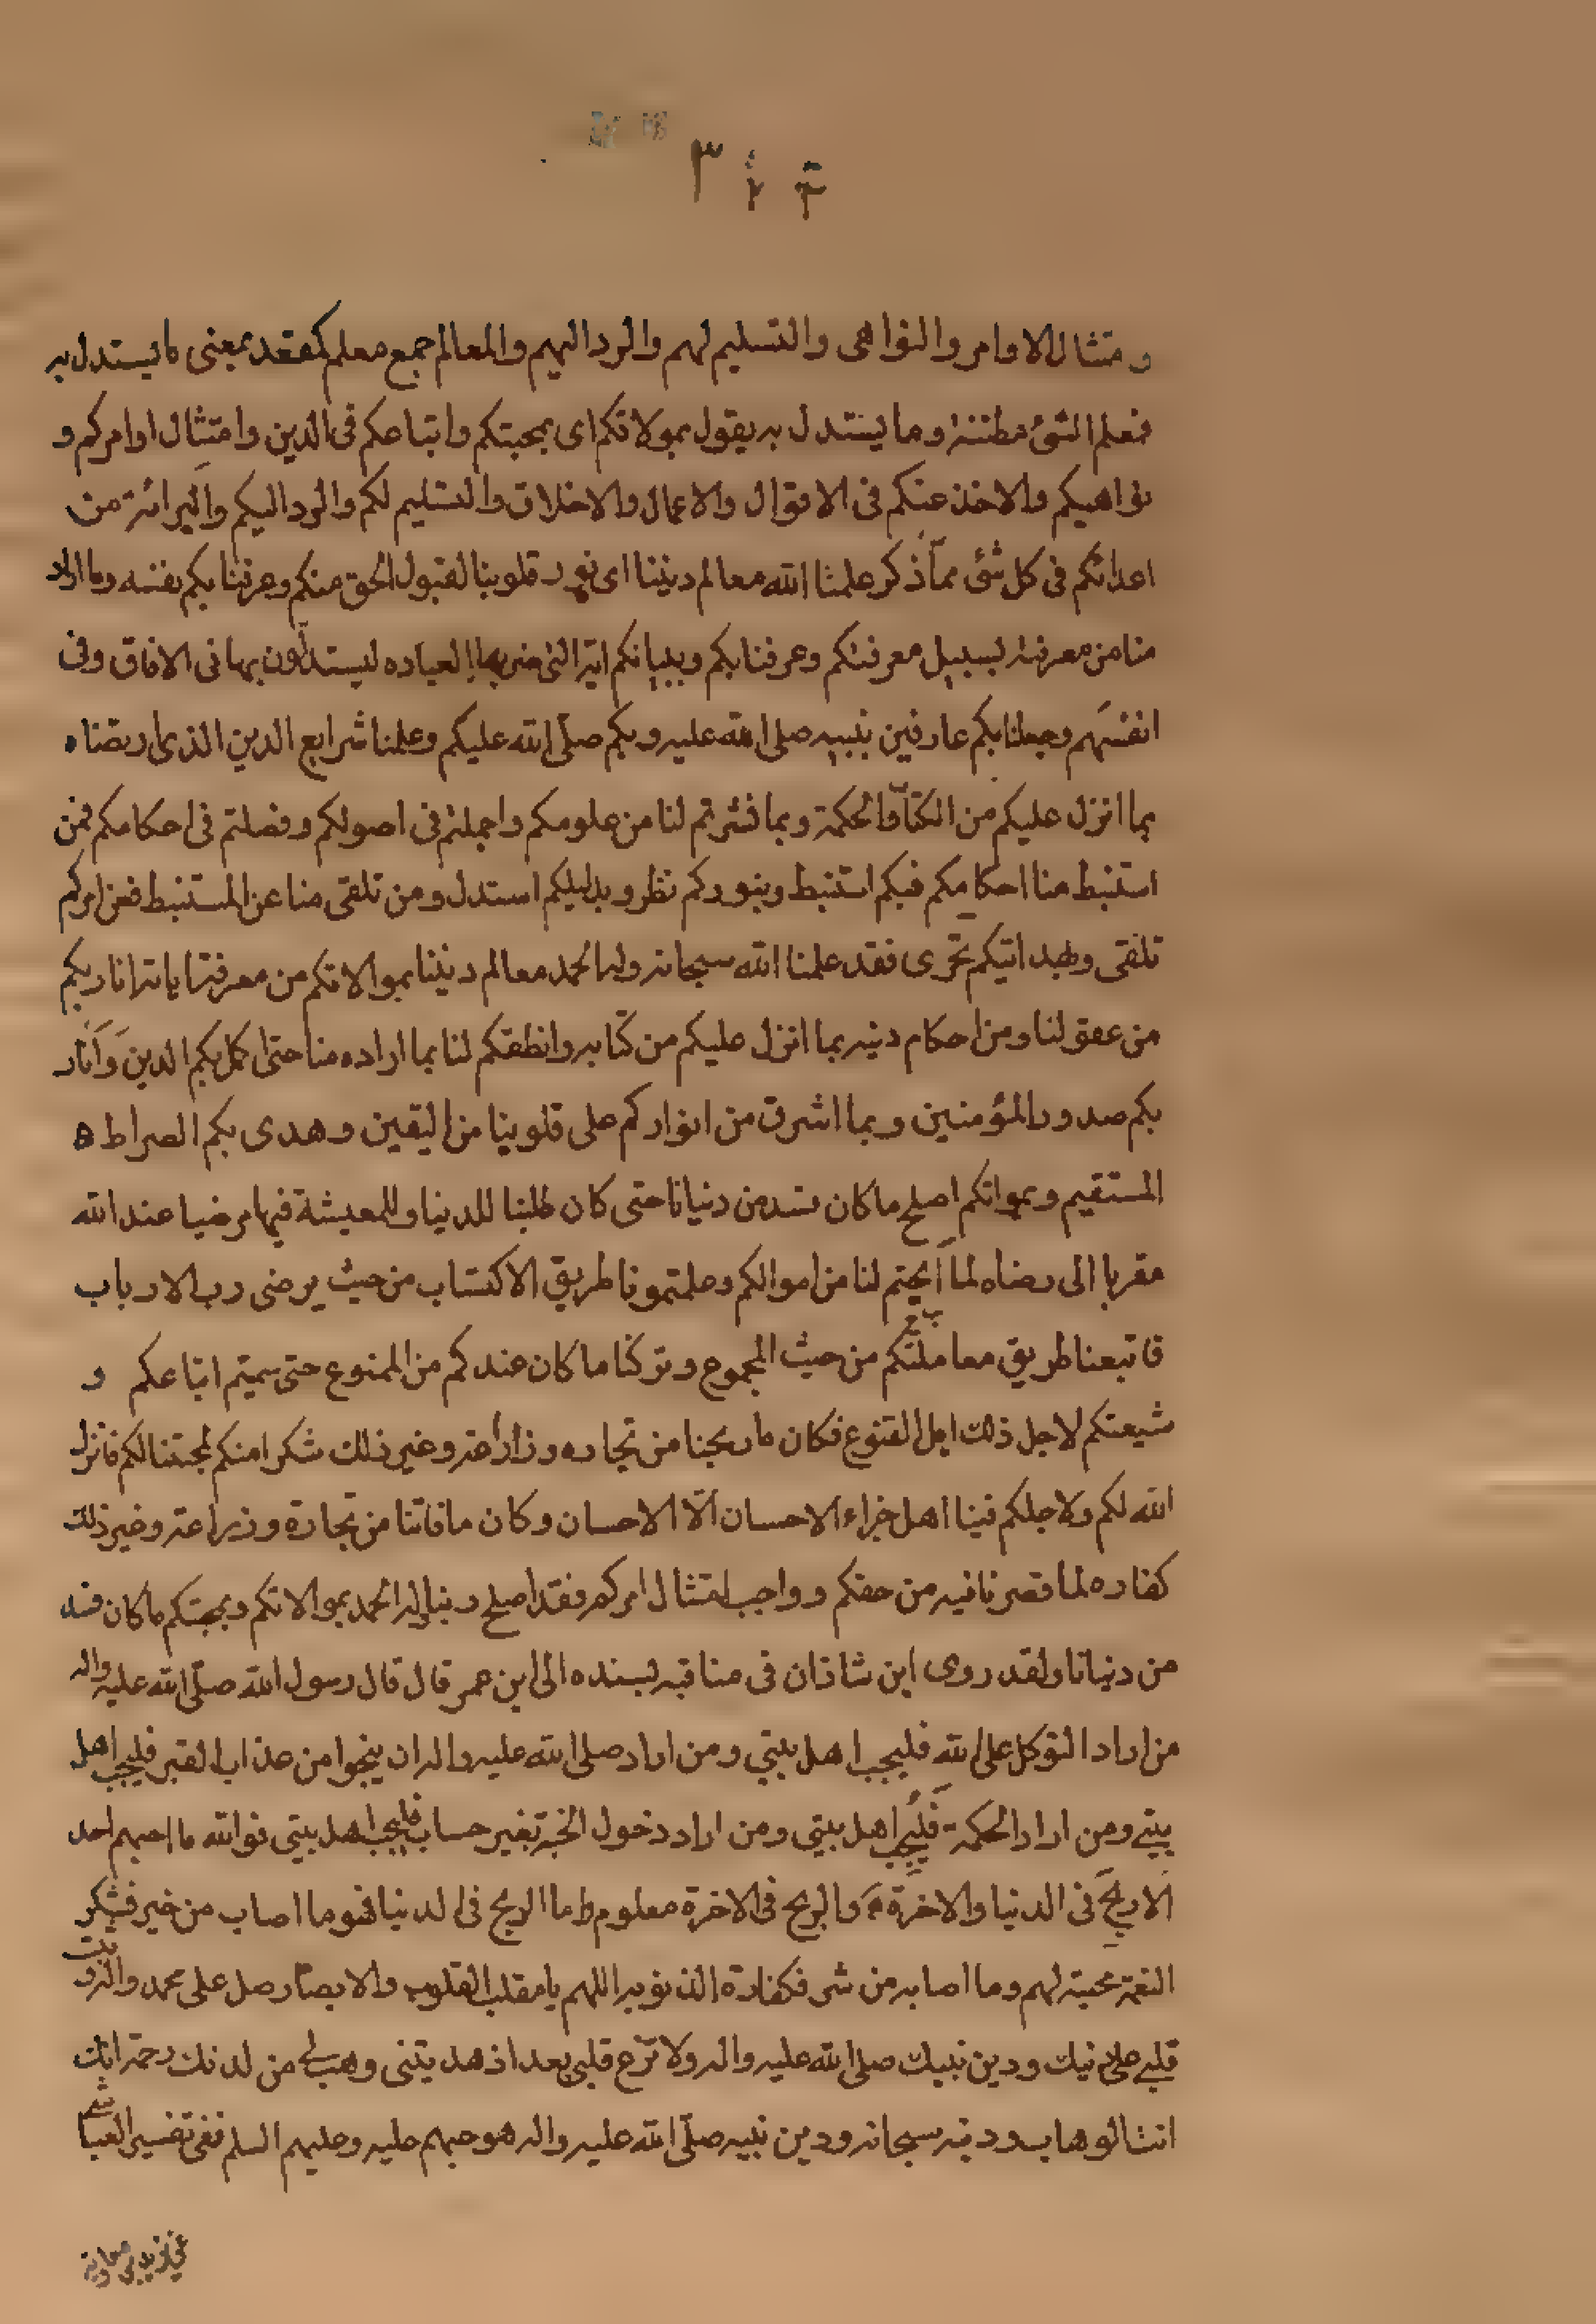 و متثال الاوامر والنواهى والتسليم لهم والرد اليهم والمعالم جمع معلم كمقعد بمعنى ما يستدل به
فمعلم الشئ مظنته وما يستدل به يقول بموالاتكم اى بمحبتكم واتباعكم فى الدين وامتثال اوامركم و
نواهيكم والاخذ عنكم فى الاقوال والاعمال والاخلاق والتسليم لكم والرد اليكم والبرائة من
اعدائكم فى كل شئ مما ذكر علمنا الله معالم ديننا اى نور قلوبنا لقبول الحق منكم وعرفنا بكم نفسه وما اراد
منا من معرفته بسبيل معرفتكم وعرفنا بكم وببيانكم اياته التى ضربها لعباده ليستدلون بها فى الافاق وفى
انفسهم وجعلنا بكم عارفين بنبيه صلى الله عليه وبكم صلى الله عليكم وعلمنا شرايع الدين الذى ارتضاه
بما انزل عليكم من الكتاب والحكمة وبما نشرتم لنا من علومكم واجملتم فى اصولكم وفصلتم فى احكامكم فمن
استنبط منا احكامكم فبكم استنبط وبنوركم نظر وبدليلكم استدل ومن تلقى منا عن المستنبط فعن امركم
تلقى وبهدايتكم تحرى فقد علمنا الله سبحانه وله الحمد معالم ديننا بموالاتكم من معرفته اياته انار بكم
من عقولنا ومن احكام دينه بما انزل عليكم من كتابه وانطقكم لنا بما اراده منا حتى اكمل بكم الدين وانار
بكم صدور المؤمنين وبما اشرق من انواركم على قلوبنا من اليقين وهدى بكم الصراط
المستقيم وبموالاتكم اصلح ما كان فسد من دنيانا حتى كان طلبنا للدنيا وللمعيشة فيها مرضيا عند الله
مقربا الى رضاه لما ابحتم لنا من اموالكم وعلمتمونا طريق الاكتساب من حيث يرضى رب الارباب
فاتبعنا طريق معاملتكم من حيث المجموع وتركنا ما كان عندكم من الممنوع حتى سميتم اتباعكم و
شيعتكم لاجل ذلك اهل القنوع فكان ما ربحنا من تجاره وزراعة وغير ذلك شكرا منكم لمحبتنا لكم فانزل
الله لكم ولاجلكم فينا اهل جزاء الاحسان الا الاحسان وكان ما فاتنا من تجارة وزراعة وغير ذلك
كفاره لما قصرنا فيه من حقكم وواجب امتثال امركم فقد اصلح ربنا وله الحمد بموالاتكم وبمحبتكم ما كان فسد
من دنيانا ولقد روى ابن شاذان فى مناقبه بسنده الى ابن عمر قال قال رسول الله صلى الله عليه واله
من اراد التوكل على الله فليحب اهل بيتي ومن اراد صلى الله عليه واله ان ينجوا من عذاب القبر فليحب اهل
بيتي ومن اراد الحكمة فليحب اهل بيتي ومن اراد دخول الجنة بغير حساب فليحب اهل بيتي فوالله ما احبهم احد
الا ربح فى الدنيا والاخرة والربح فى الاخرة معلوم واما الربح فى الدنيا فهو ما اصاب من خير فشكر
النعمة محبة لهم وما اصابه من شر فكفارة الذنوبه اللهم يا مقلب القلوب والابصار صل على محمد واله وثبت
قلبي على دينك ودين نبيك صلى الله عليه واله ولا تزغ قلبي بعد اذ هديتنى وهب لى من لدنك رحمة انك
انت الوهاب ودينه سبحانه ودين نبيه صلى الله عليه واله هو حبهم عليه وعليهم السلم ففى تفسير العياشى